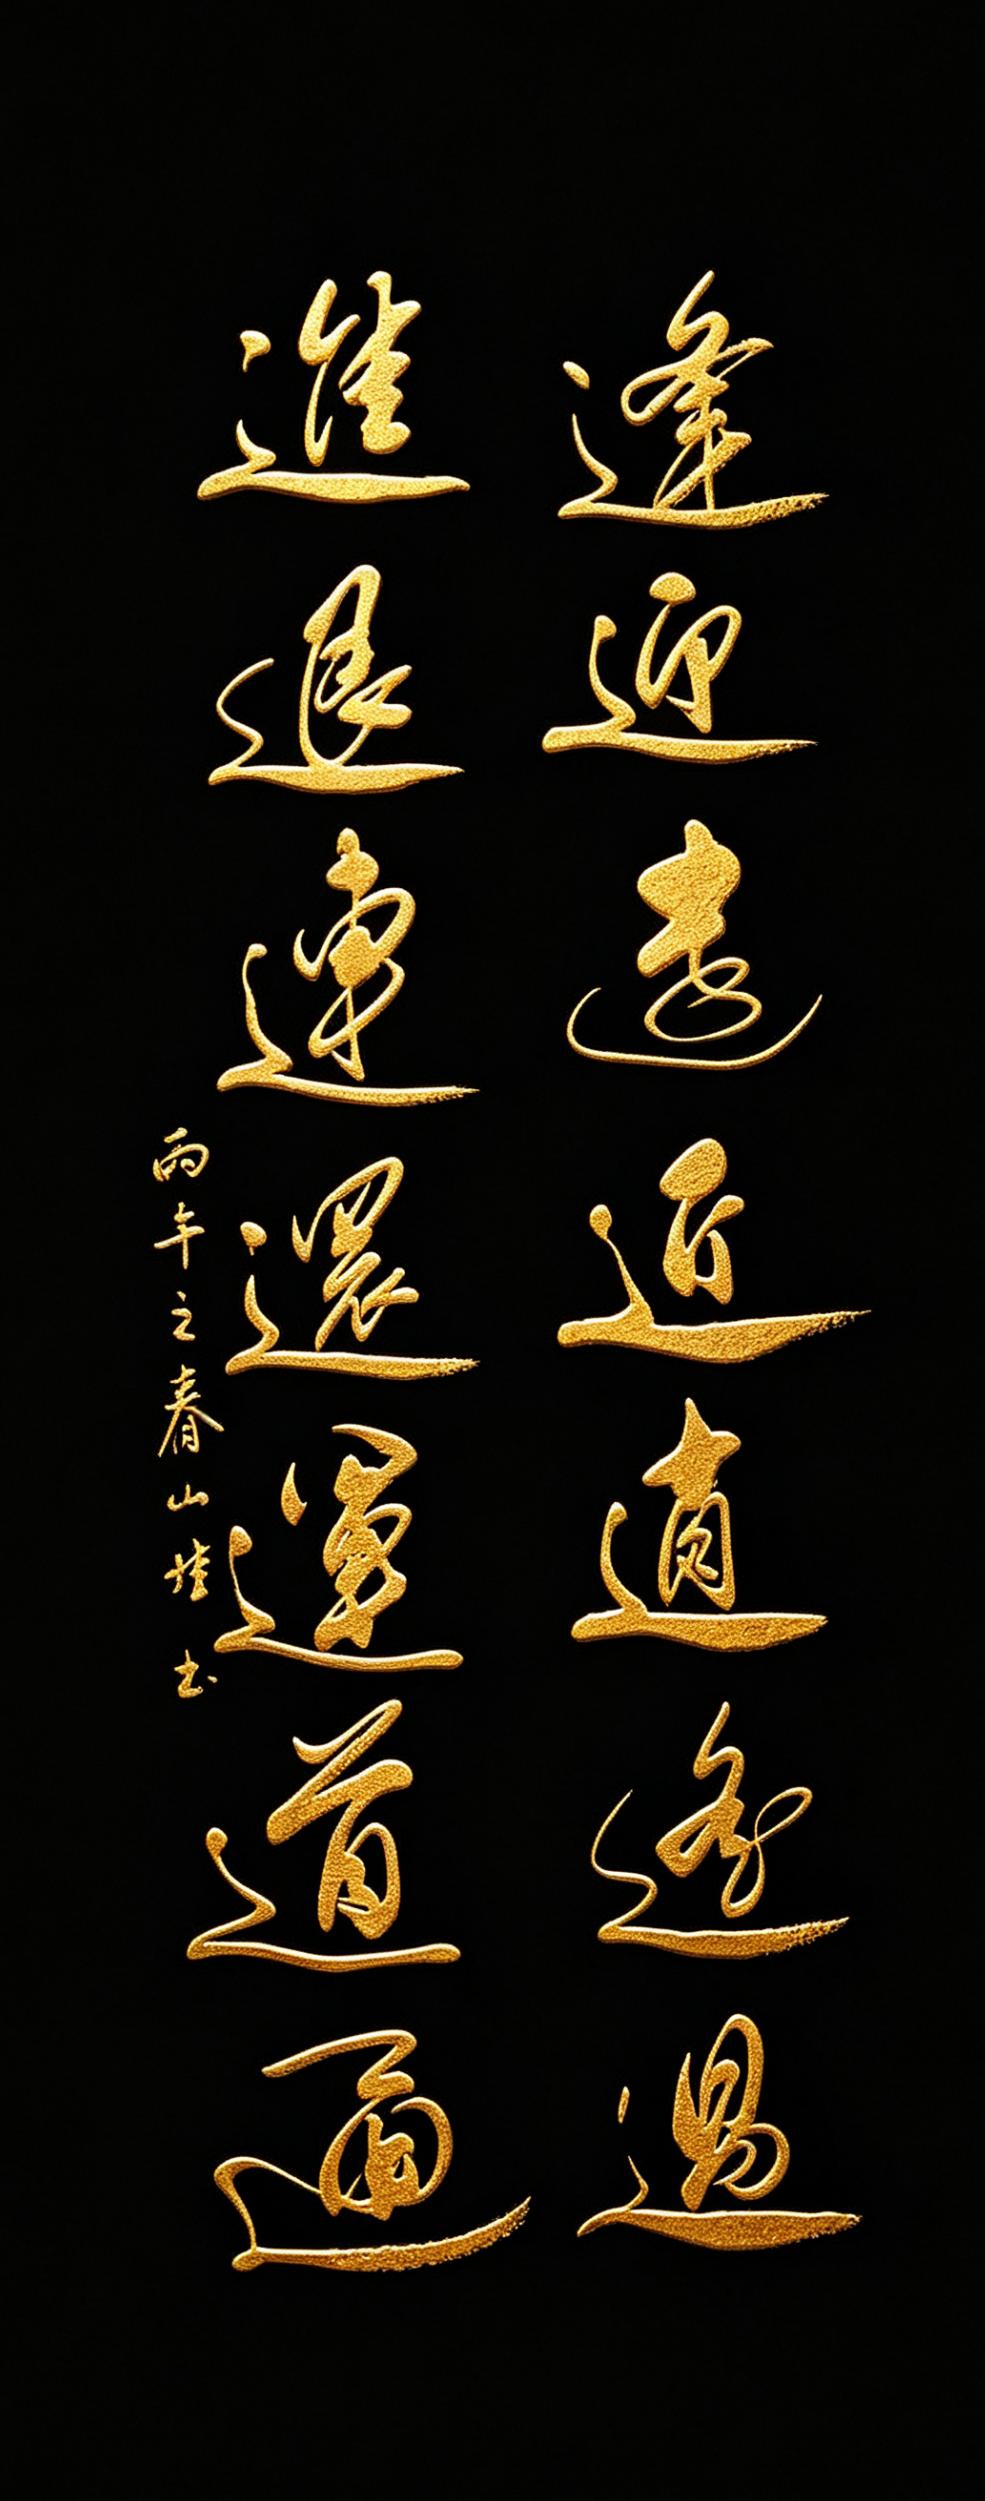 逢迎遠近逍遙過
進退連還運道通
丙午之春山书